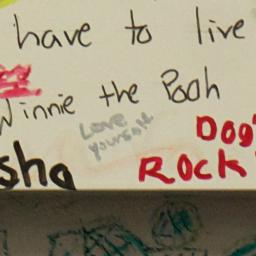 have to live
Winnie the Pooh
Love
yourself
Dog's
Rock
sha